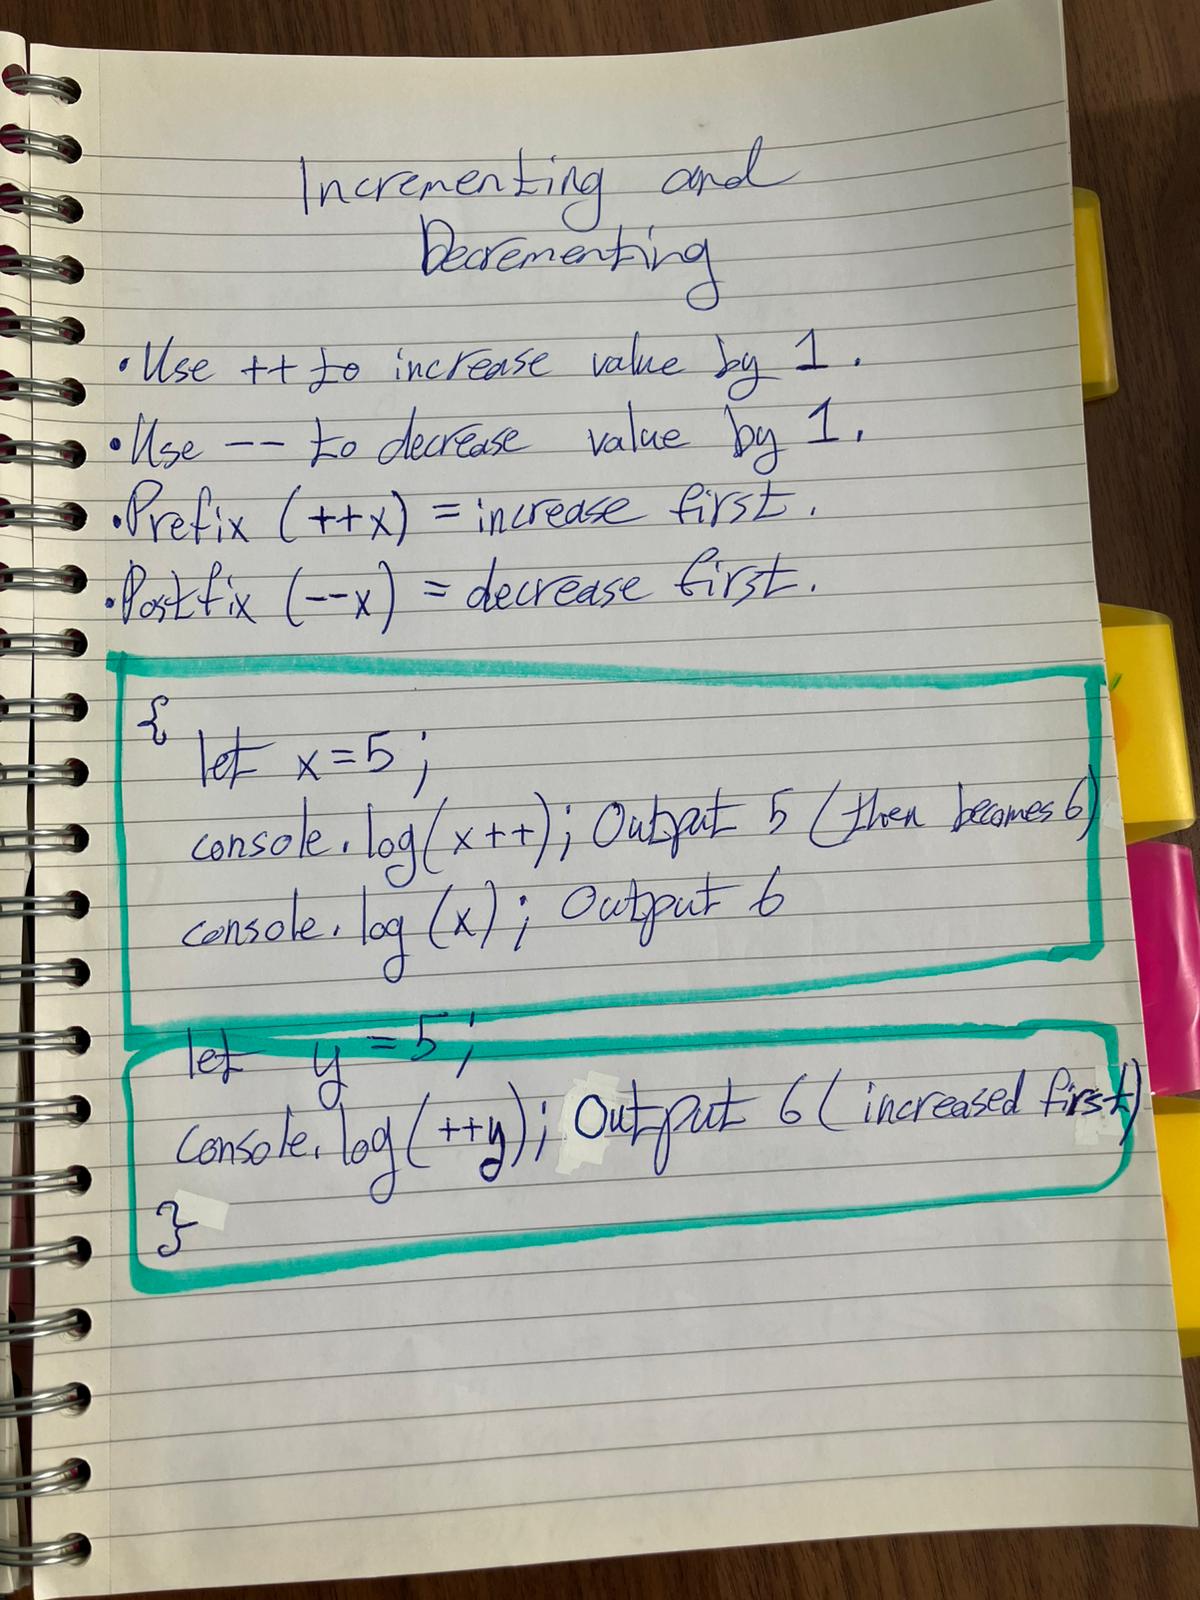 Incrementing and
Decrementing
• Use ++ to increase value by 1.
• Use -- to decrease value by 1.
• Prefix (++x) = increase first.
• Postfix (--x) = decrease first.
{
let x = 5;
console.log(x++); Output 5 (then becomes 6)
console.log(x); Output 6
let y = 5;
console.log(++y); Output 6 (increased first)
}